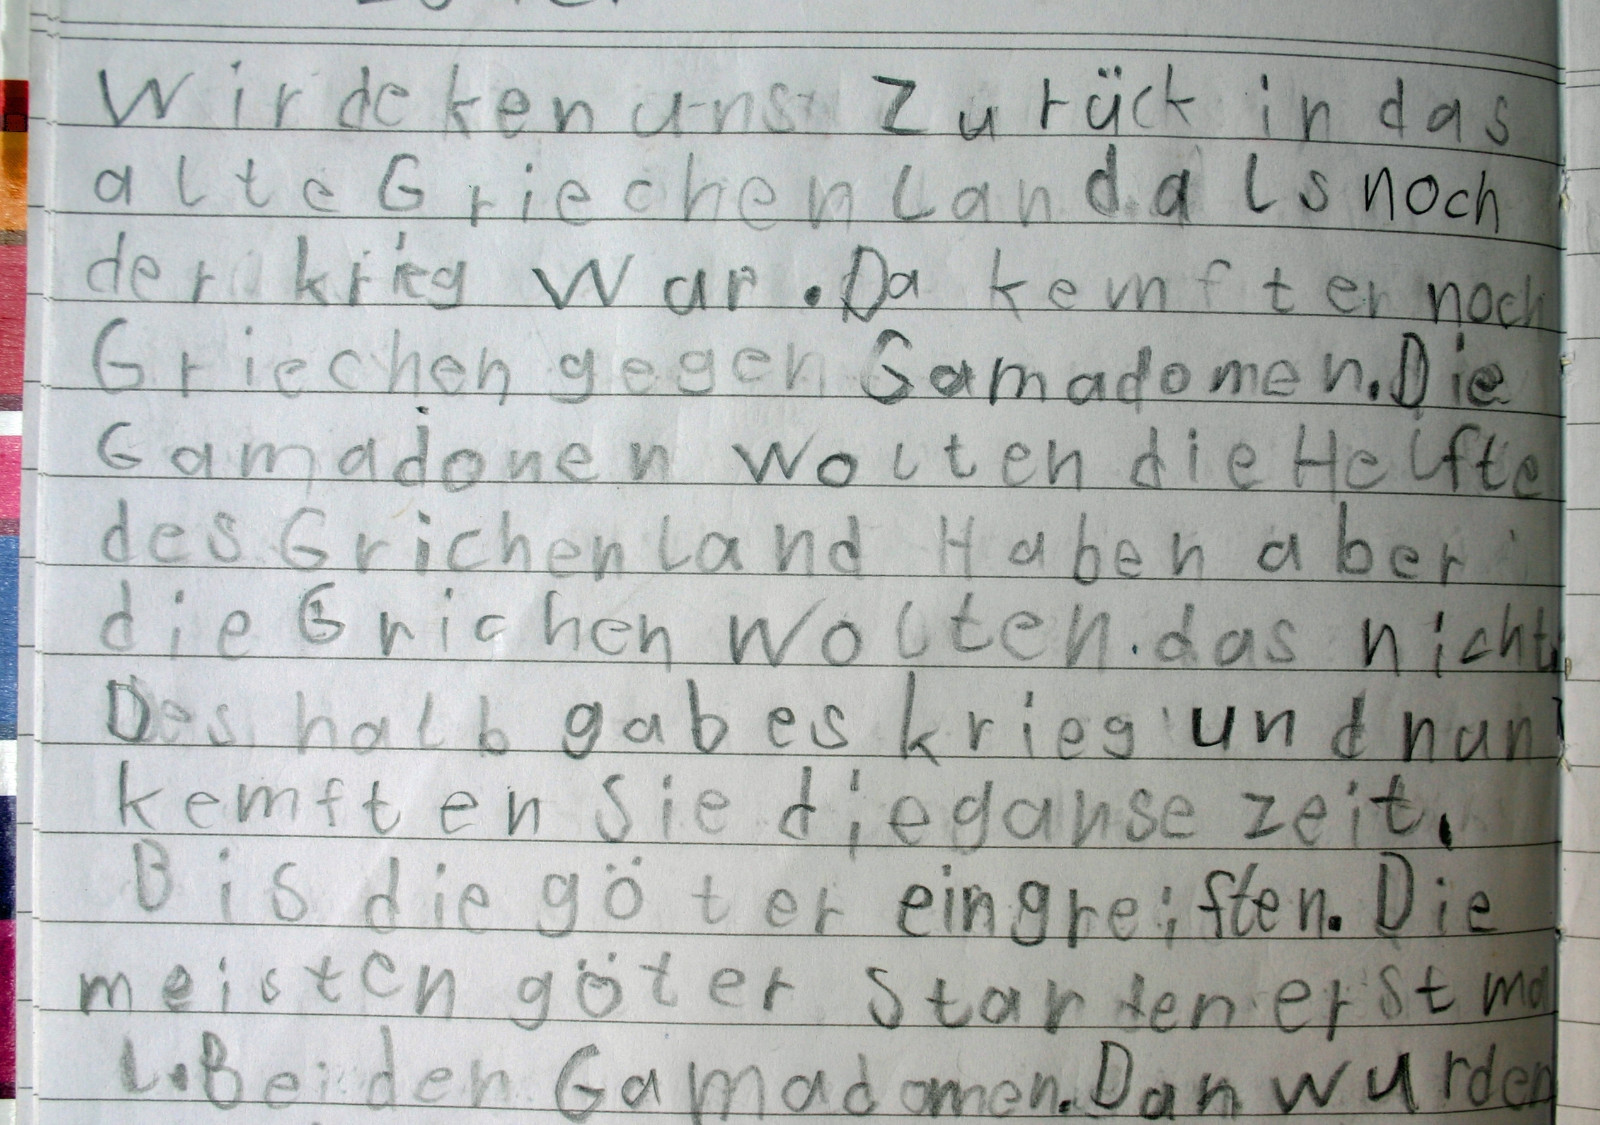 Wir deken uns Zurück in das
alte Griechenland als noch
der krieg War. Da kemften noch
Griechen gegen Gamadomen. Die
Gamadonen wolten die Helfte
des Grichenland Haben aber
die Grichen Wolten. das nicht.
Deshalb gab es krieg und nun
kemften Sie die ganse zeit.
Bis die göter eingreiften. Die
meisten göter Starten erst ma
l. Bei den Gamadomen. Dan wurden